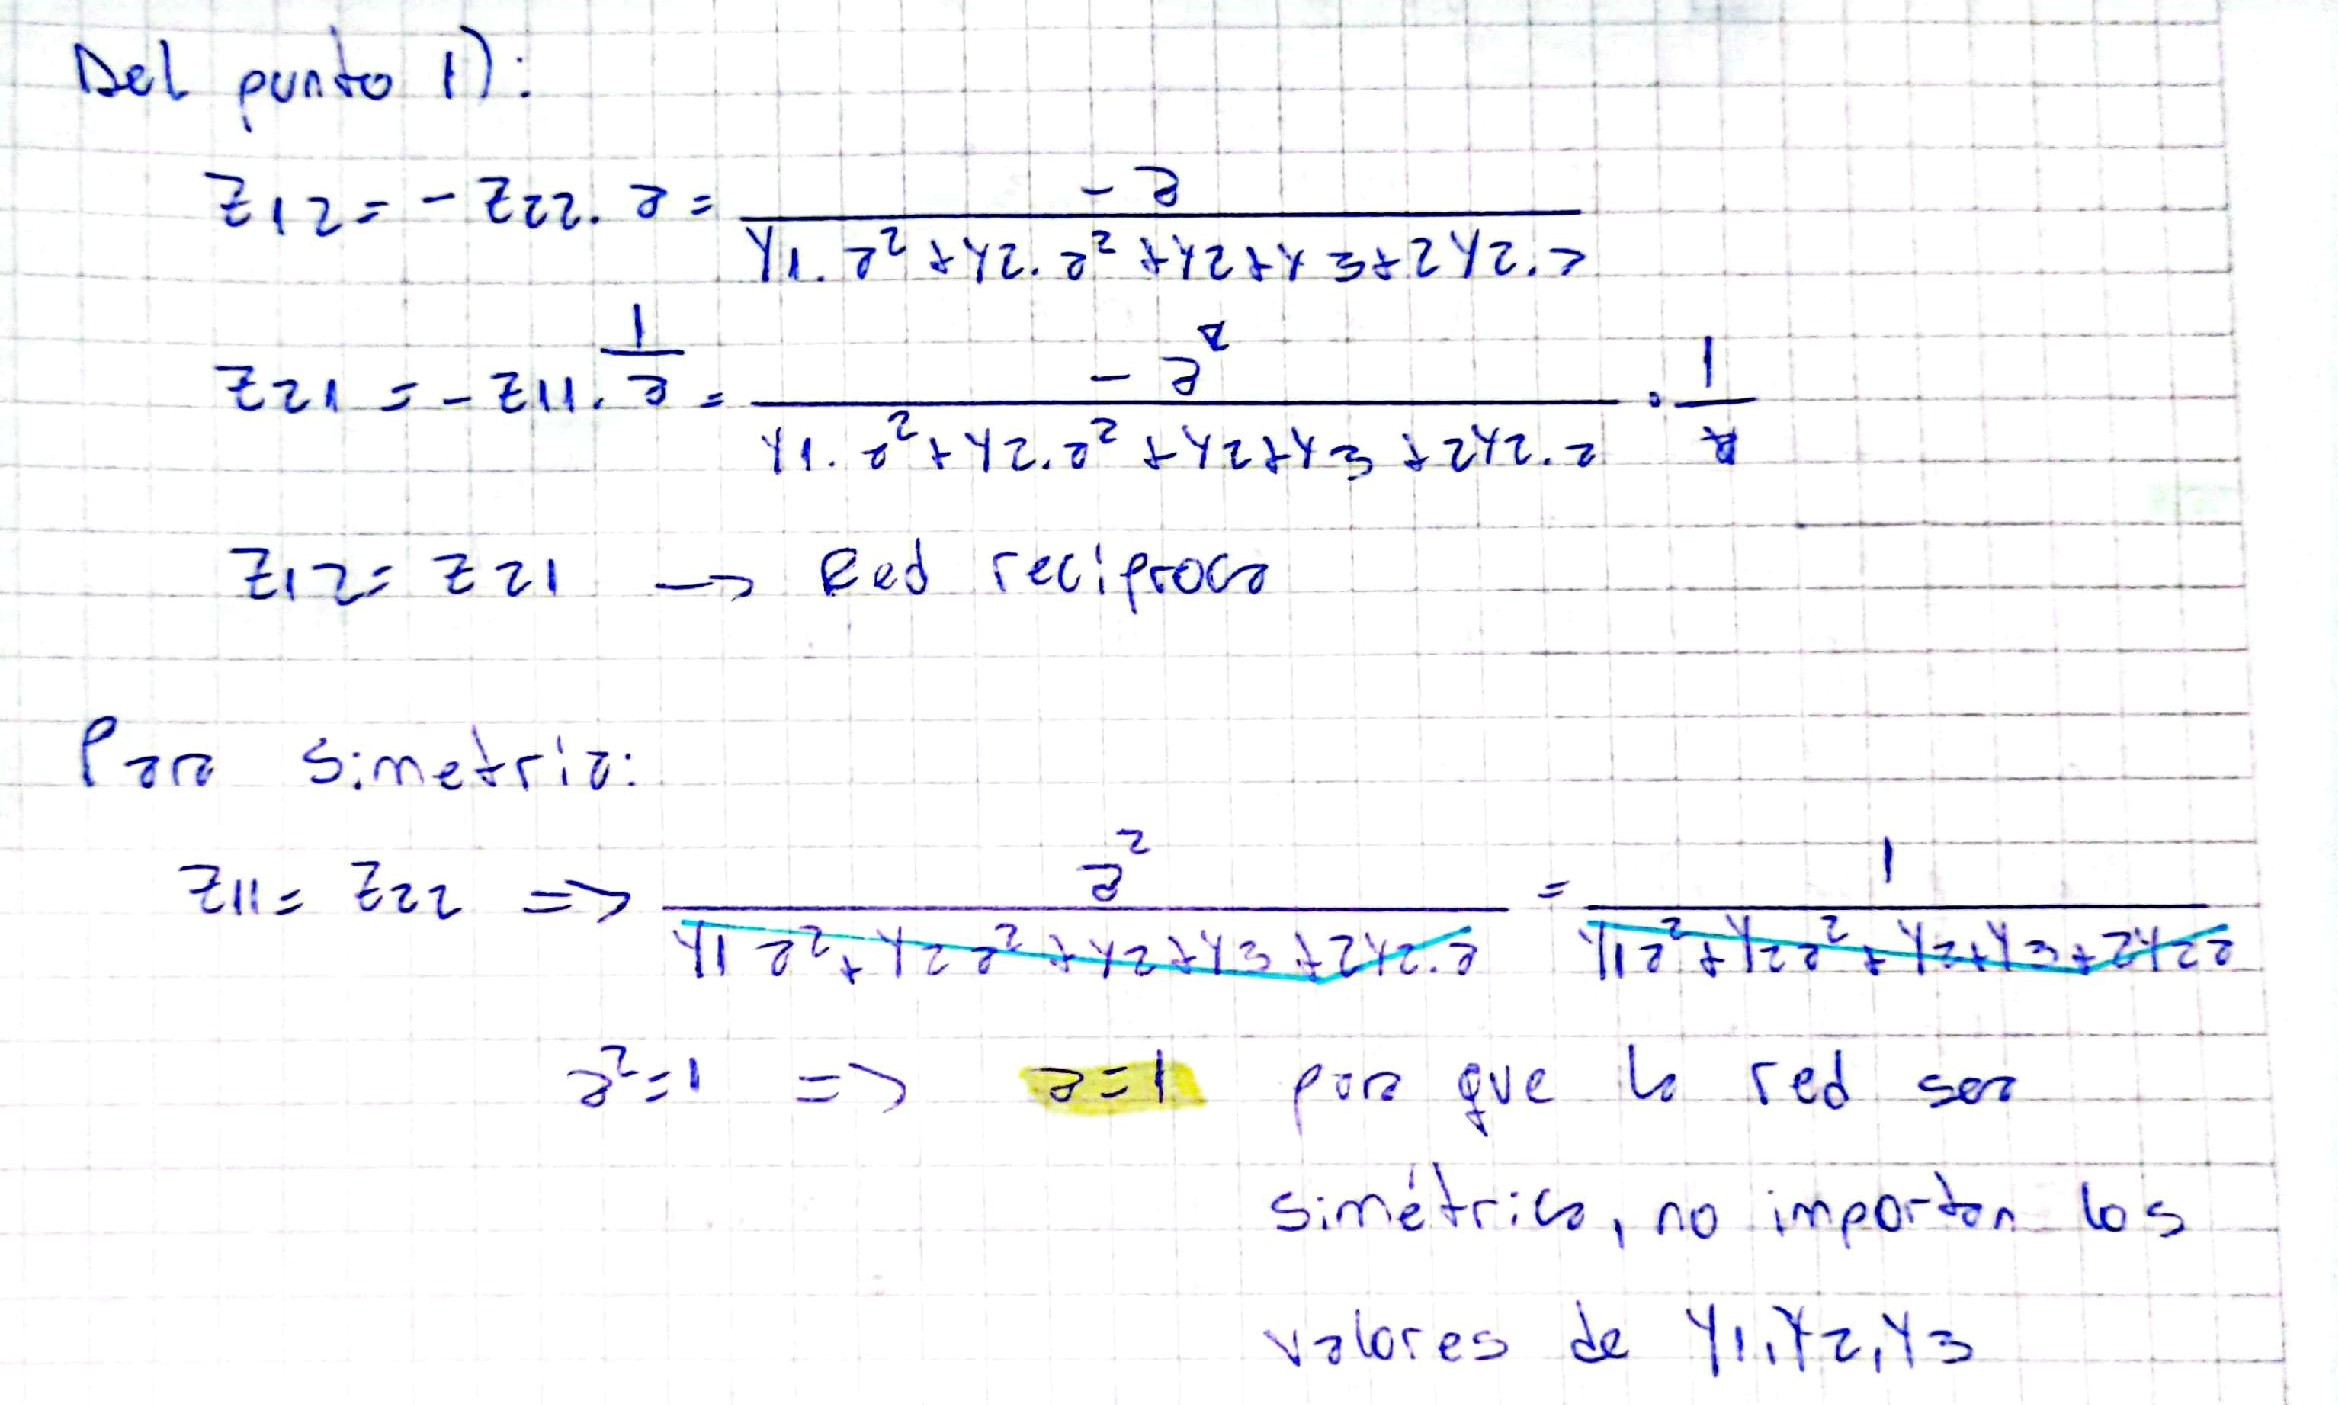 Del punto 1):
Z12 = -Z22 . a = -a / (Y1. a² + Y2. a² + Y2 + Y3 + 2Y2. a)
Z21 = -Z11 . 1/a = -a² / (Y1. a² + Y2. a² + Y2 + Y3 + 2Y2. a) . 1/a
Z12 = Z21 → Red recíproca
Para simetría:
Z11 = Z22 => a² / (Y1 a² + Y2 a² + Y2 + Y3 + 2Y2. a) = 1 / (Y1 a² + Y2 a² + Y2 + Y3 + 2Y2 a)
a² = 1 => a = 1 para que la red sea
simétrica, no importan los
valores de Y1, Y2, Y3